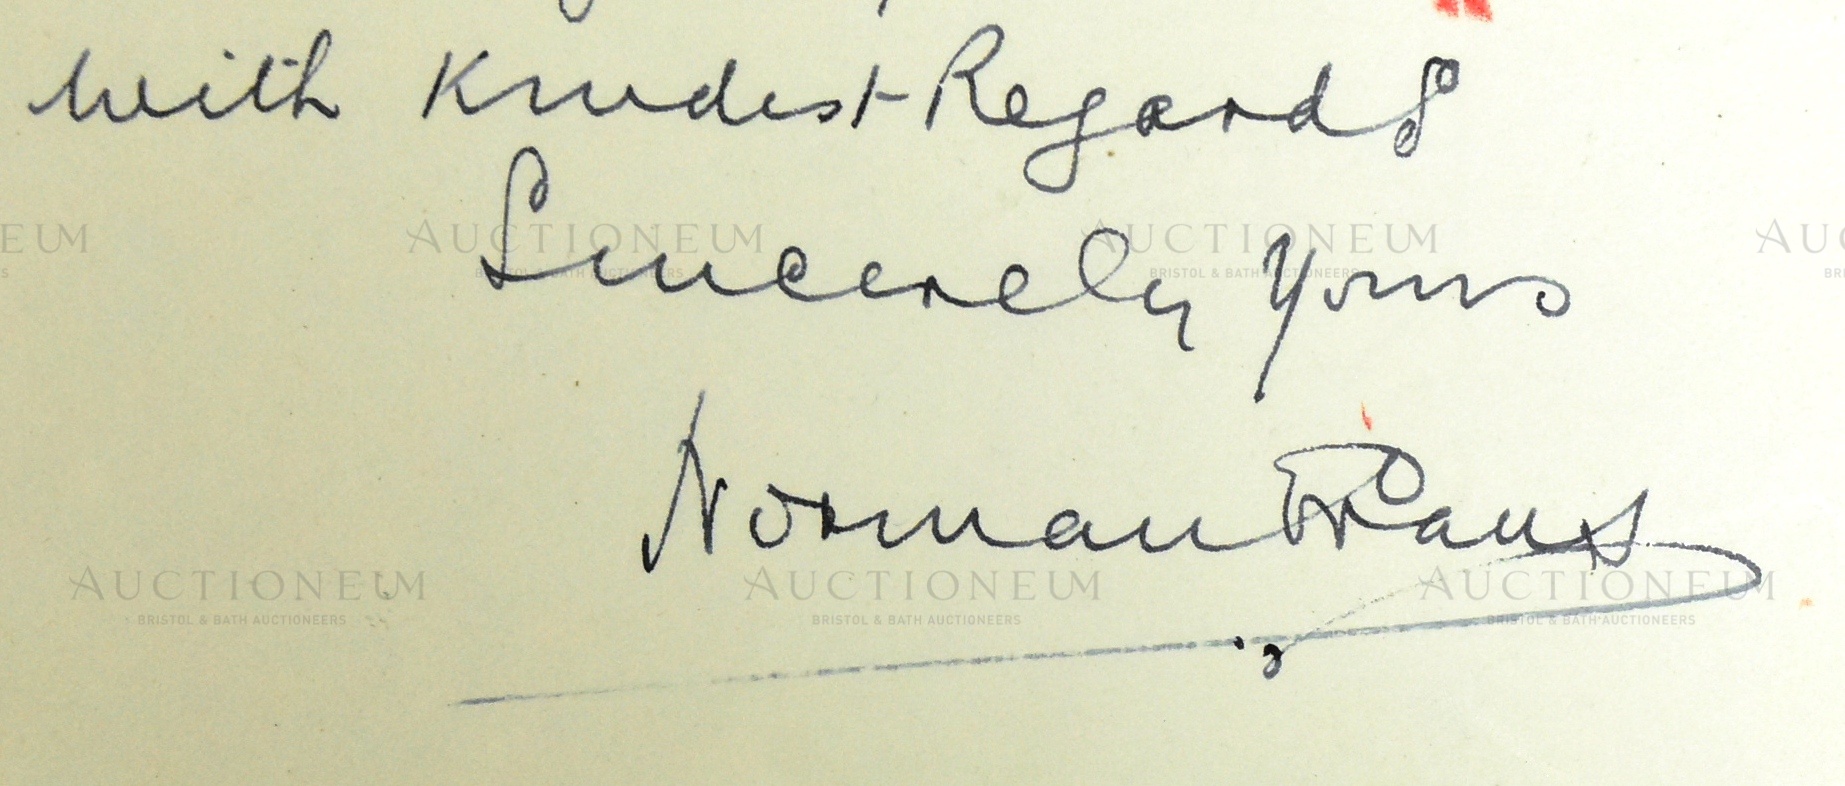 with Kindest Regards
Sincerely Yours
Norman
AUCTIONEUM AUCTIONEUM
BRISTOL & BATH AUCTIONEERS BRISTOL & BATH AUCTIONEERS
AUCTIONEUM AUCTIONEUM AUCTIONEUM
BRISTOL & BATH AUCTIONEERS BRISTOL & BATH AUCTIONEERS BRISTOL & BATH AUCTIONEERS